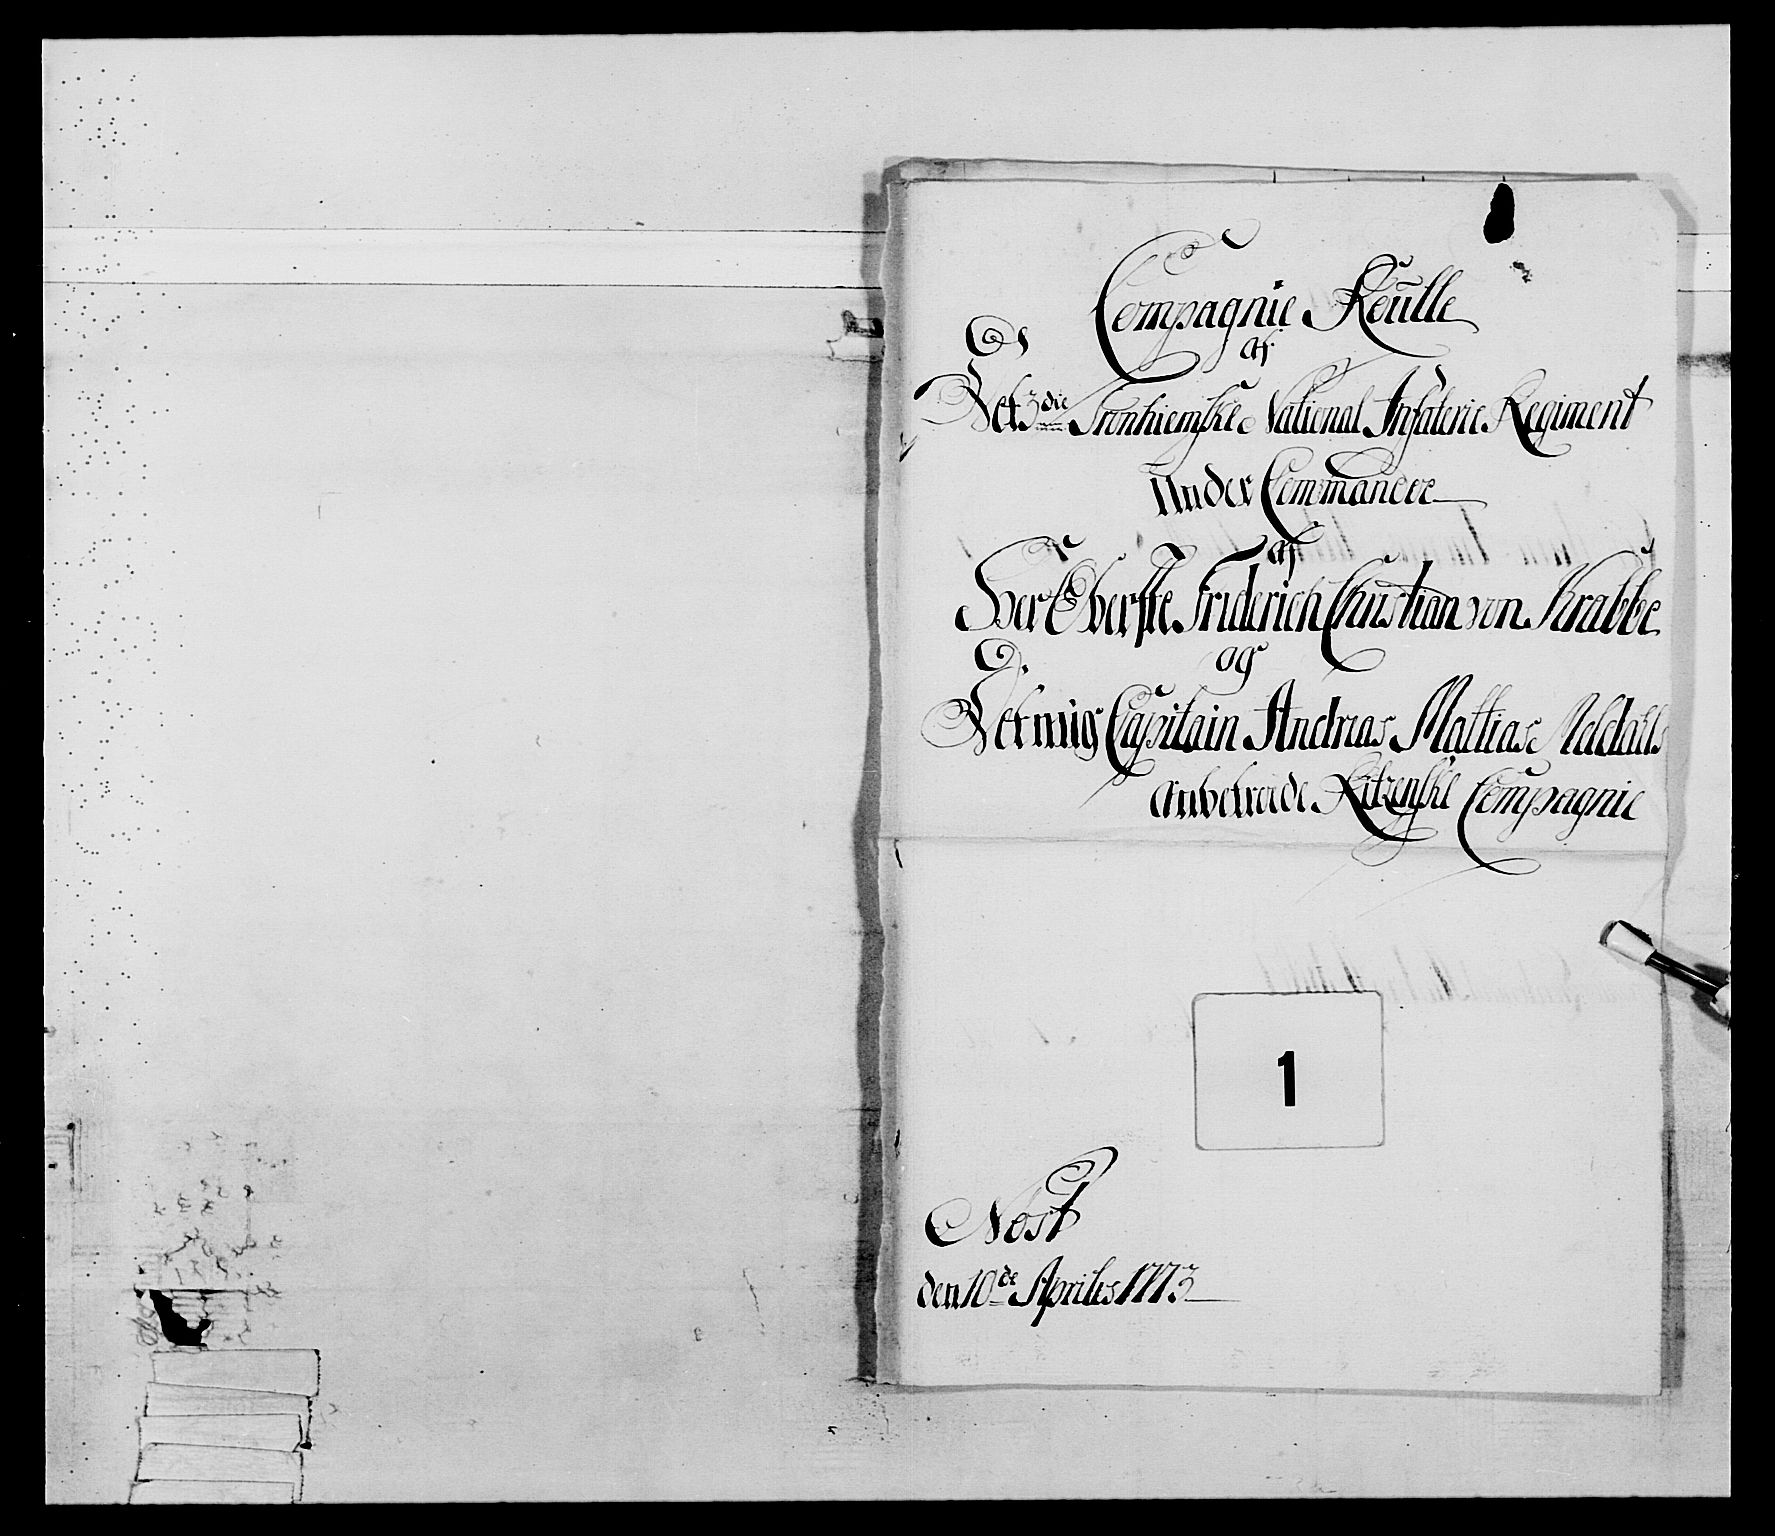 Compagnie Roülle
af
Det 3die Tronhiemske National Infaterie Regiment
Under Commandoe
af
Her Oberste Friderich Christian von Krabbe
og
Det mig Capitain Andreas Mattias
anbetroede Ritzenske Compagnie
1
Nöst
den 10de Aprilis 1773